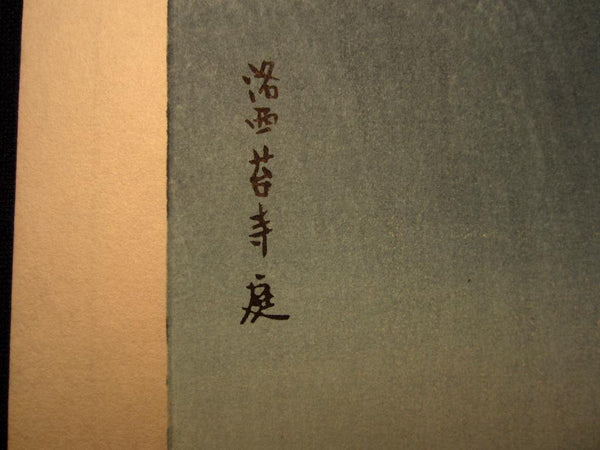 洛西苔寺庭